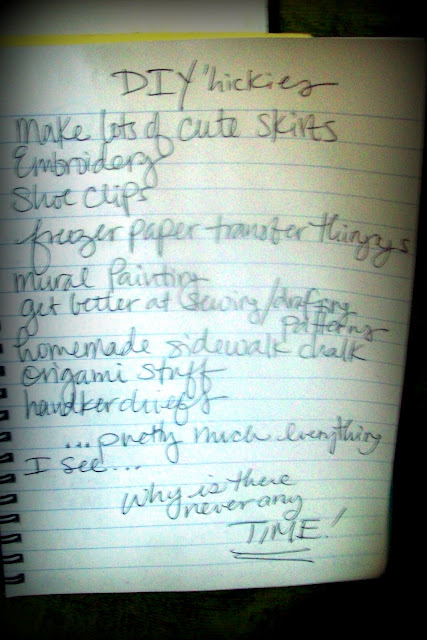 DIY'hickies
Make lots of cute skirts
Embroidery
Shoe clips
frezer paper transfer thingys
mural painting
get better at sewing/drafting
patterns
homemade sidewalk chalk
origami stuff
handkerchiefs
...pretty much everything
I see...
Why is there
never any
TIME!